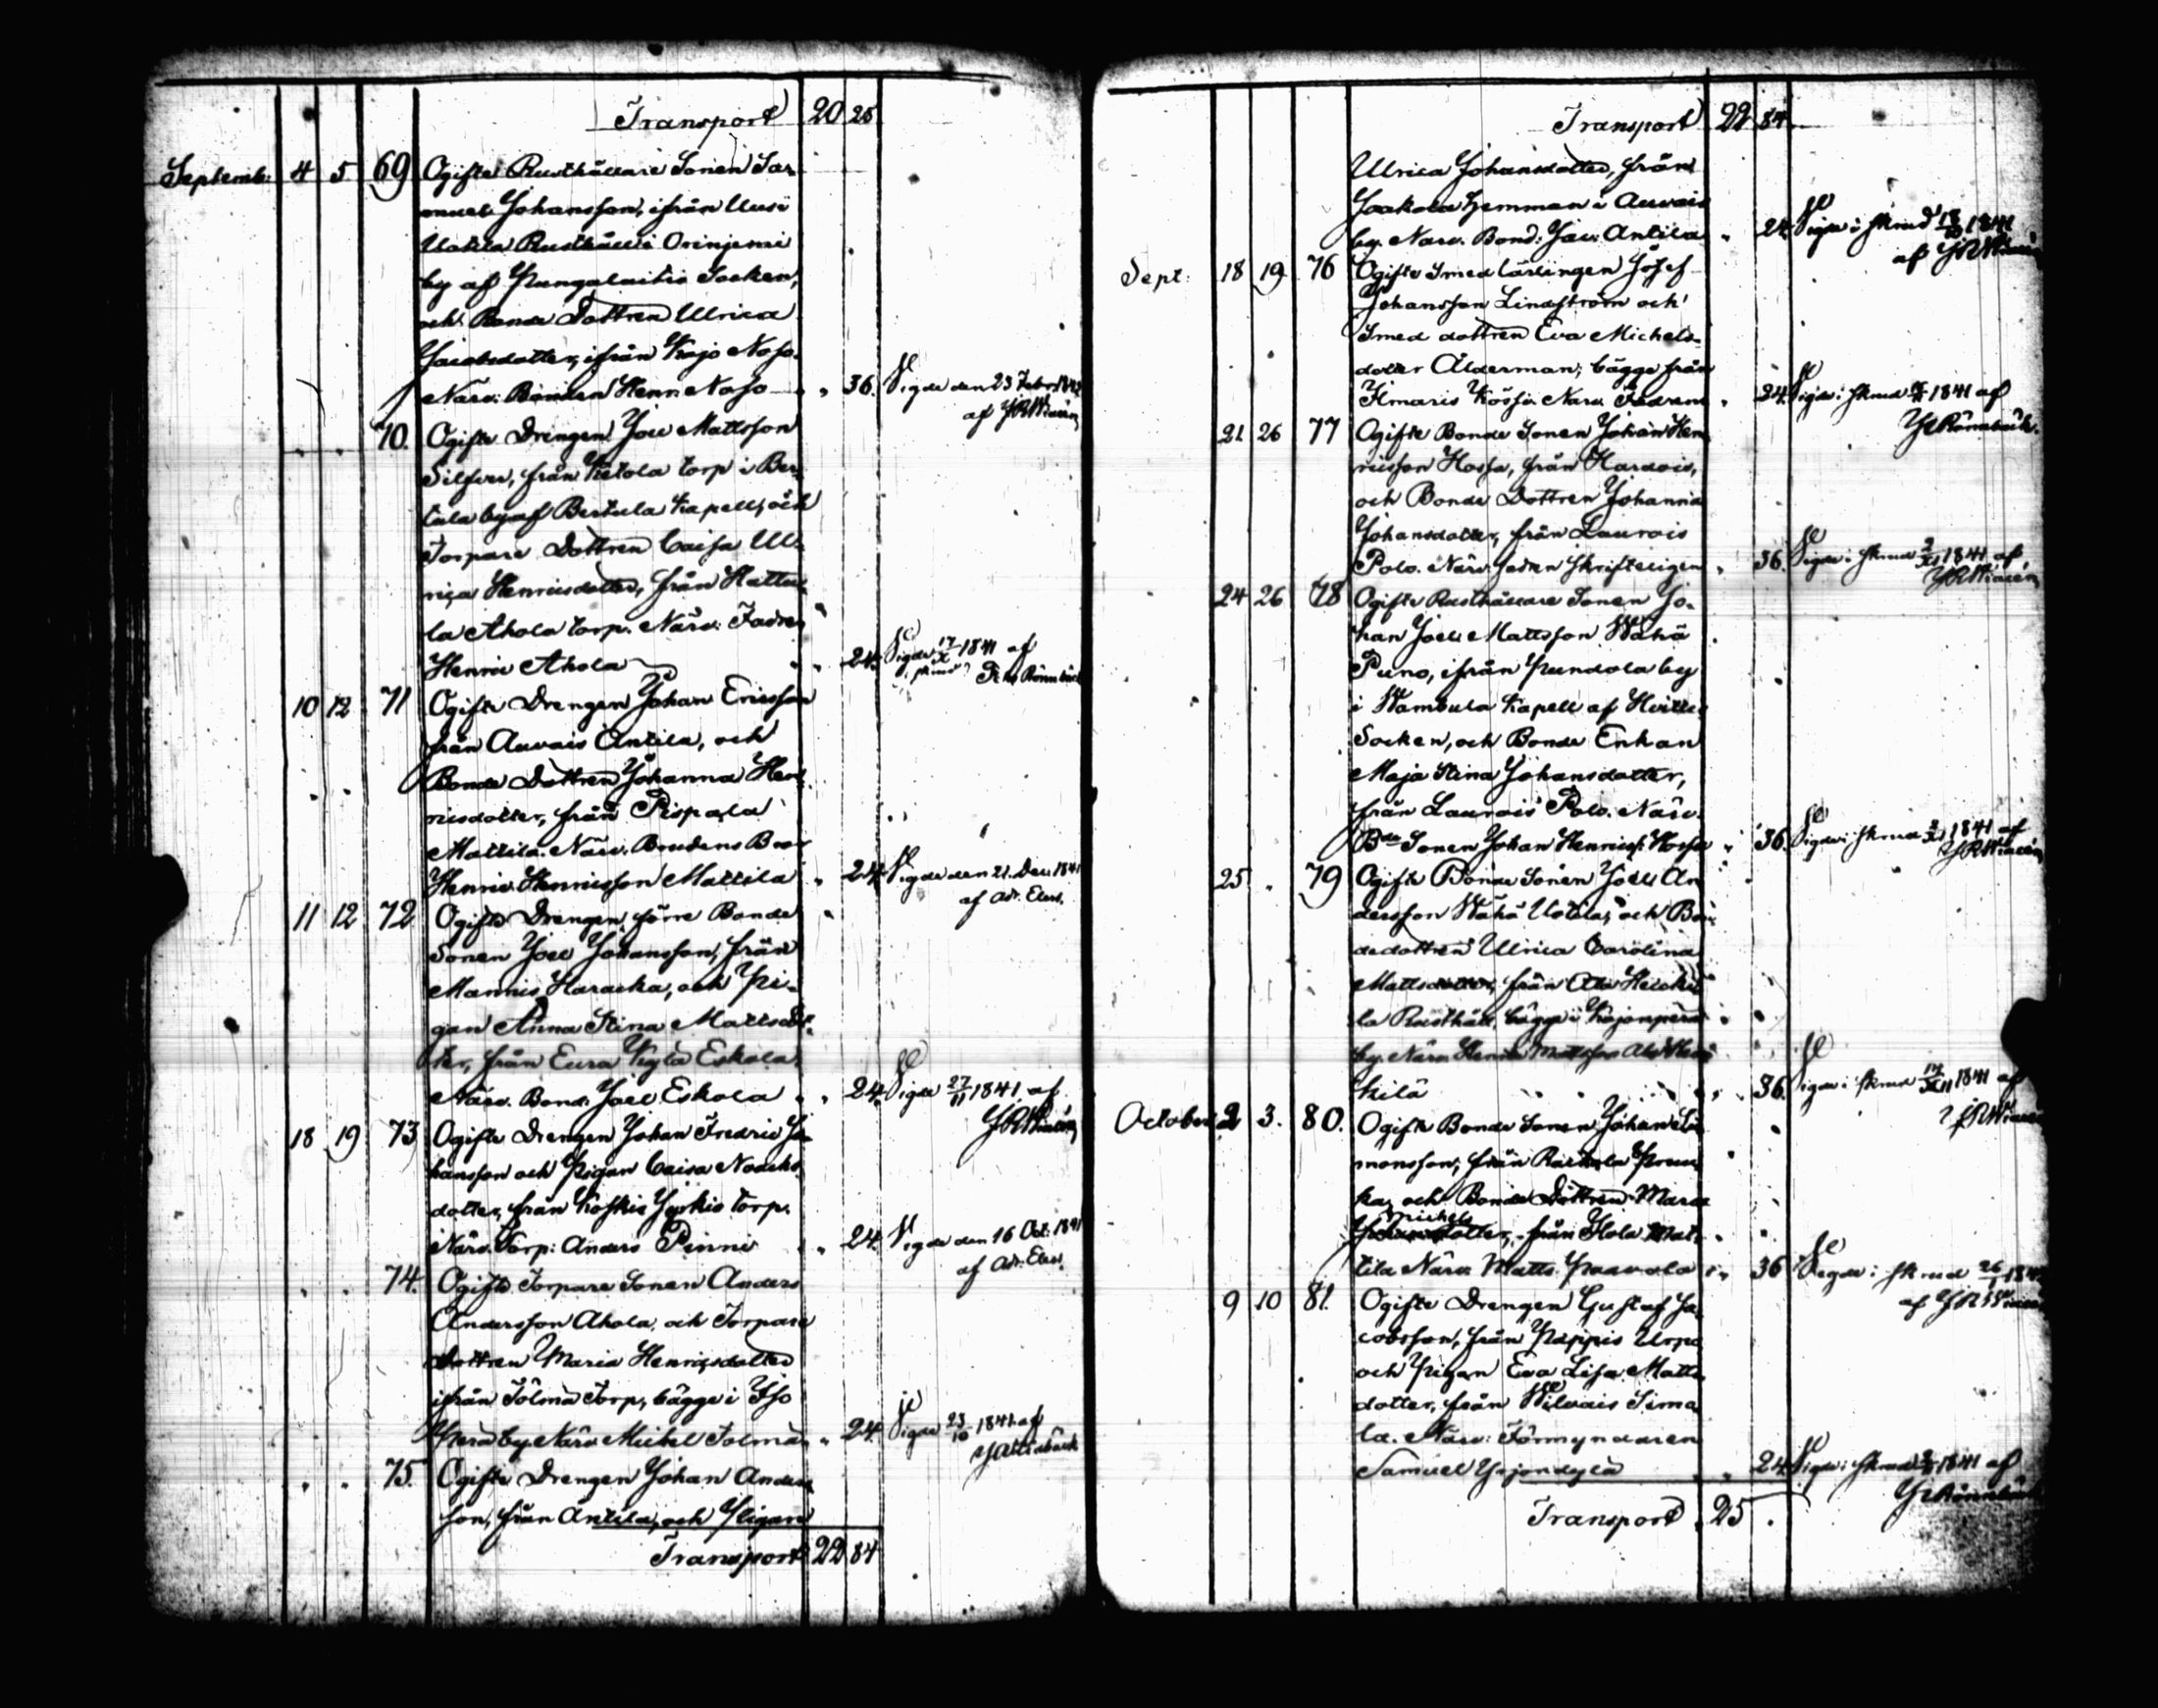 Transport 20 25
Septemb: 4 5 69 Ogifte Rusthållare Sonen Sa-
muel Johansson, ifrån Uusi
Uotila Rusthåll i Orinjemi
by af Pungalaitio Socken,
och Bonde Dottren Ulrica
Jacobsdotter, ifrån Kojo Noso.
Närv: Bonden Henr: Noso " 36. Vigde den 23 Febr. 1842
af
70. Ogifte Drengen Joel Mattsson
Silfver, från Ketola torp i Ber-
tula by af Bertula Kapell, och
Torpare Dottren Caisa Ul-
rica Henricsdotter, från Hattu-
la Ahola torp. Närv: Fadren
Henric Ahola " " 24. Vigde 17/X 1841 af
10 12 71 Ogifte Drengen Johan Ericsson
från Auvais Antila, och
Bonde Dottren Johanna Hen-
ricsdotter, från Pispala
Mattila. Närv. Brudens Bror
Henric Henricsson Mattila " 24. Vigde den 21. Dec. 1841
af Ad.
11 12 72 Ogifte Drengen, förre Bonde
Sonen Joel Johansson, från
Mannis Haracka, och Pi-
gan Anna Stina Mattsdot-
ter, från Eura Kylä Eskola.
Närv. Bond: Joel Eskola " " 24. Vigde 27/11 1841 af
18 19 73 Ogifte Drengen Johan Fredric Jo-
hansson och Pigan Caisa Noachs-
dotter, från Koskis Yrkis torp.
Närv. Torp: Anders Pinni " " 24. Vigde den 16 Oct. 1841
af Ad.
74. Ogifte Torpare Sonen Anders
Andersson Ahola, och Torpare
Dottren Maria Henricsdotter
ifrån Tolma Torp, bägge i Iso
Perä by. Närv. Michel Tolma " 24. Vigde 23/10 1841 af
75. Ogifte Drengen Johan Anders-
son, från Antila, och Pigan
Transport 22 84
Transport 22 84
Ulrica Johansdotter, från
Jaakola Hemman i Auvais
by. Narv. Bond: Jac: Antila " 24. Vigde i skrud 1841
af
Sept: 18 19 76 Ogifte Smed lärlingen Josef
Johansson Lindström och
Smed dottren Eva Michels-
dotter Ålderman, bägge från
Ilmaris Kössi. Narv. Fadren " 24. Vigde i skrud 1841 af
21 26 77 Ogifte Bonde Sonen Johan Hen-
ricsson Hossa, från Hardois,
och Bonde Dottren Johanna
Johansdotter, från Laurois
Polo. Närv. Fadren skrifteligen " 36. Vigde i skrud 1841 af
24 26 78 Ogifte Rusthållare Sonen Jo-
han Joel Mattsson Wähä
Puno, ifrån Pundola by
i Wambula Kapell af Hvittis
Socken, och Bonde Enkan
Maja Stina Johansdotter,
från Laurois Polo. Närv.
Bde Sonen Johan Henricss: Hossa " 36. Vigde i skrud 1841 af
25 " 79 Ogifte Bonde Sonen Joel An-
dersson Wähä Uotila, och Bon-
dedottren Ulrica Carolina
Mattsdotter, från Ali Heicki-
la Rusthåll, bägge i Kajonperä
by. Närv. Henric Mattsson Ali Heic-
kilä " 36. Vigde i skrud 14/XII 1841 af
October 2 3. 80. Ogifte Bonde Sonen Johan Si-
monsson, från Raikola Pruu-
ka, och Bonde Dottren Maria
Michels
dotter, från Hola Mat-
tila. Närv. Matts Paavola " 36 Vigde i skrud 26/1
af
9 10 81. Ogifte Drengen Gustaf Ja-
cobsson, från Pappis Urpo
och Pigan Eva Lisa Matts-
dotter, från Wilvais Sima-
la. Närv: Förmyndaren
Samuel " " 24. Vigde i skrud 1841 af
Transport 25 .